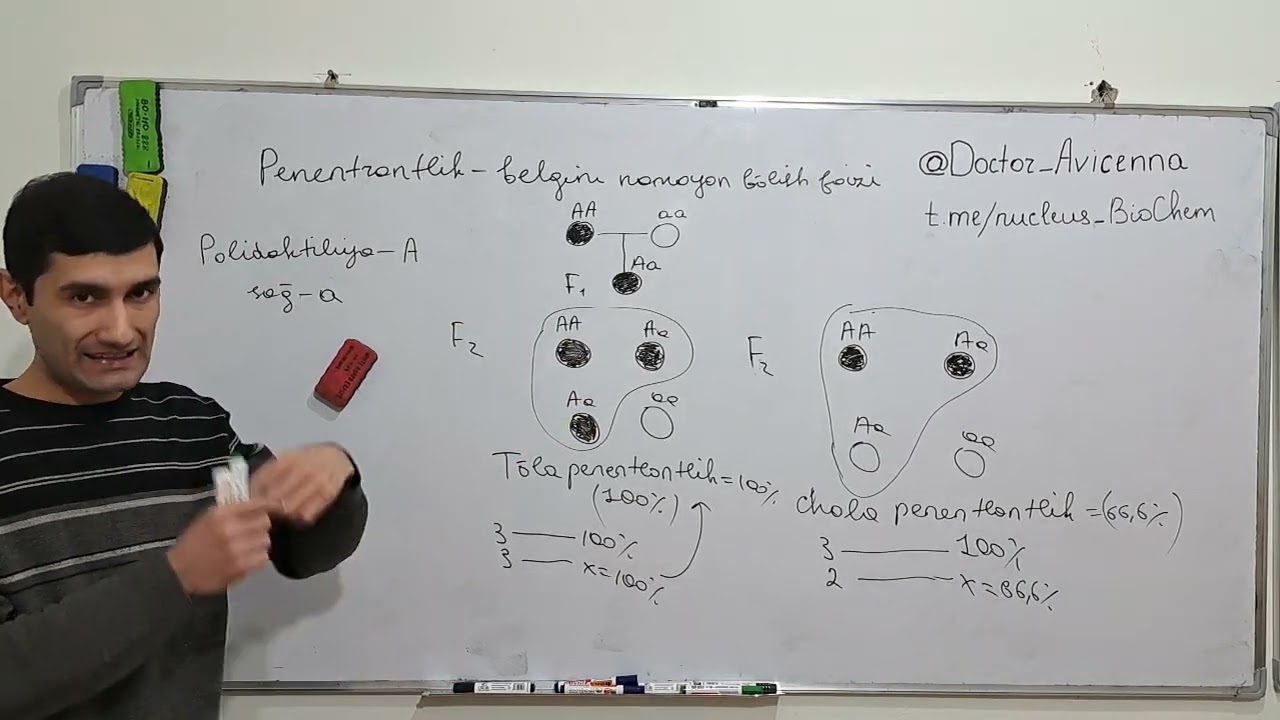 Penentrantlik - belgini nomoyon bōlish foizi
@Doctor_Avicenna
t.me/nucleus_BioChem
Polidaktiliya - A
soḡ - a
AA
aa
Aa
F₁
F₂
AA
Aa
Aa
aa
Tōla penentrantlik = 100%
(100%)
3 — 100%
3 — x = 100%
F₂
AA
Aa
Aa
aa
chala penentrantlik = (66,6%)
3 — 100%
2 — x = 66,6%